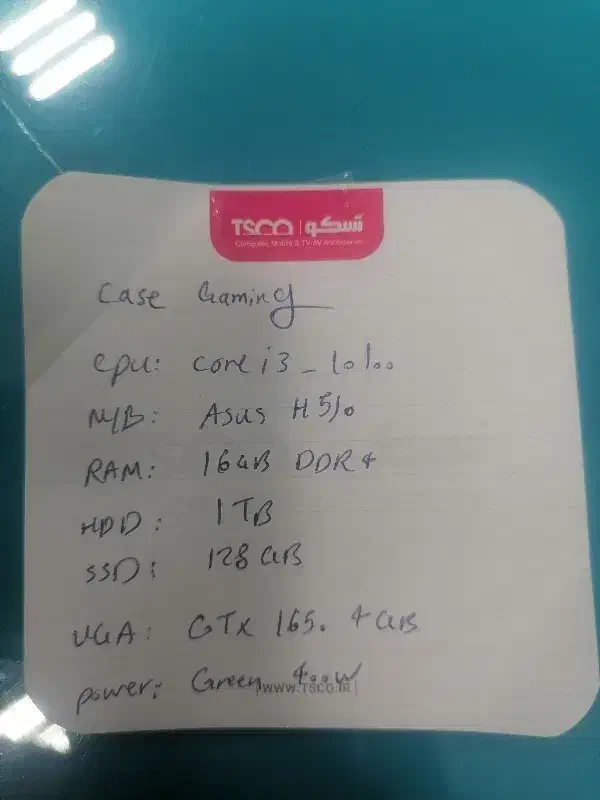 TSCO | تسکو
Computer, Mobile & TV-AV Accessories
Case Gaming
cpu: core i3 - 10100
M/B: Asus H510
RAM: 16GB DDR4
HDD: 1TB
SSD: 128GB
VGA: GTX 1650 4GB
power: Green 400W
WWW.TSCO.IR